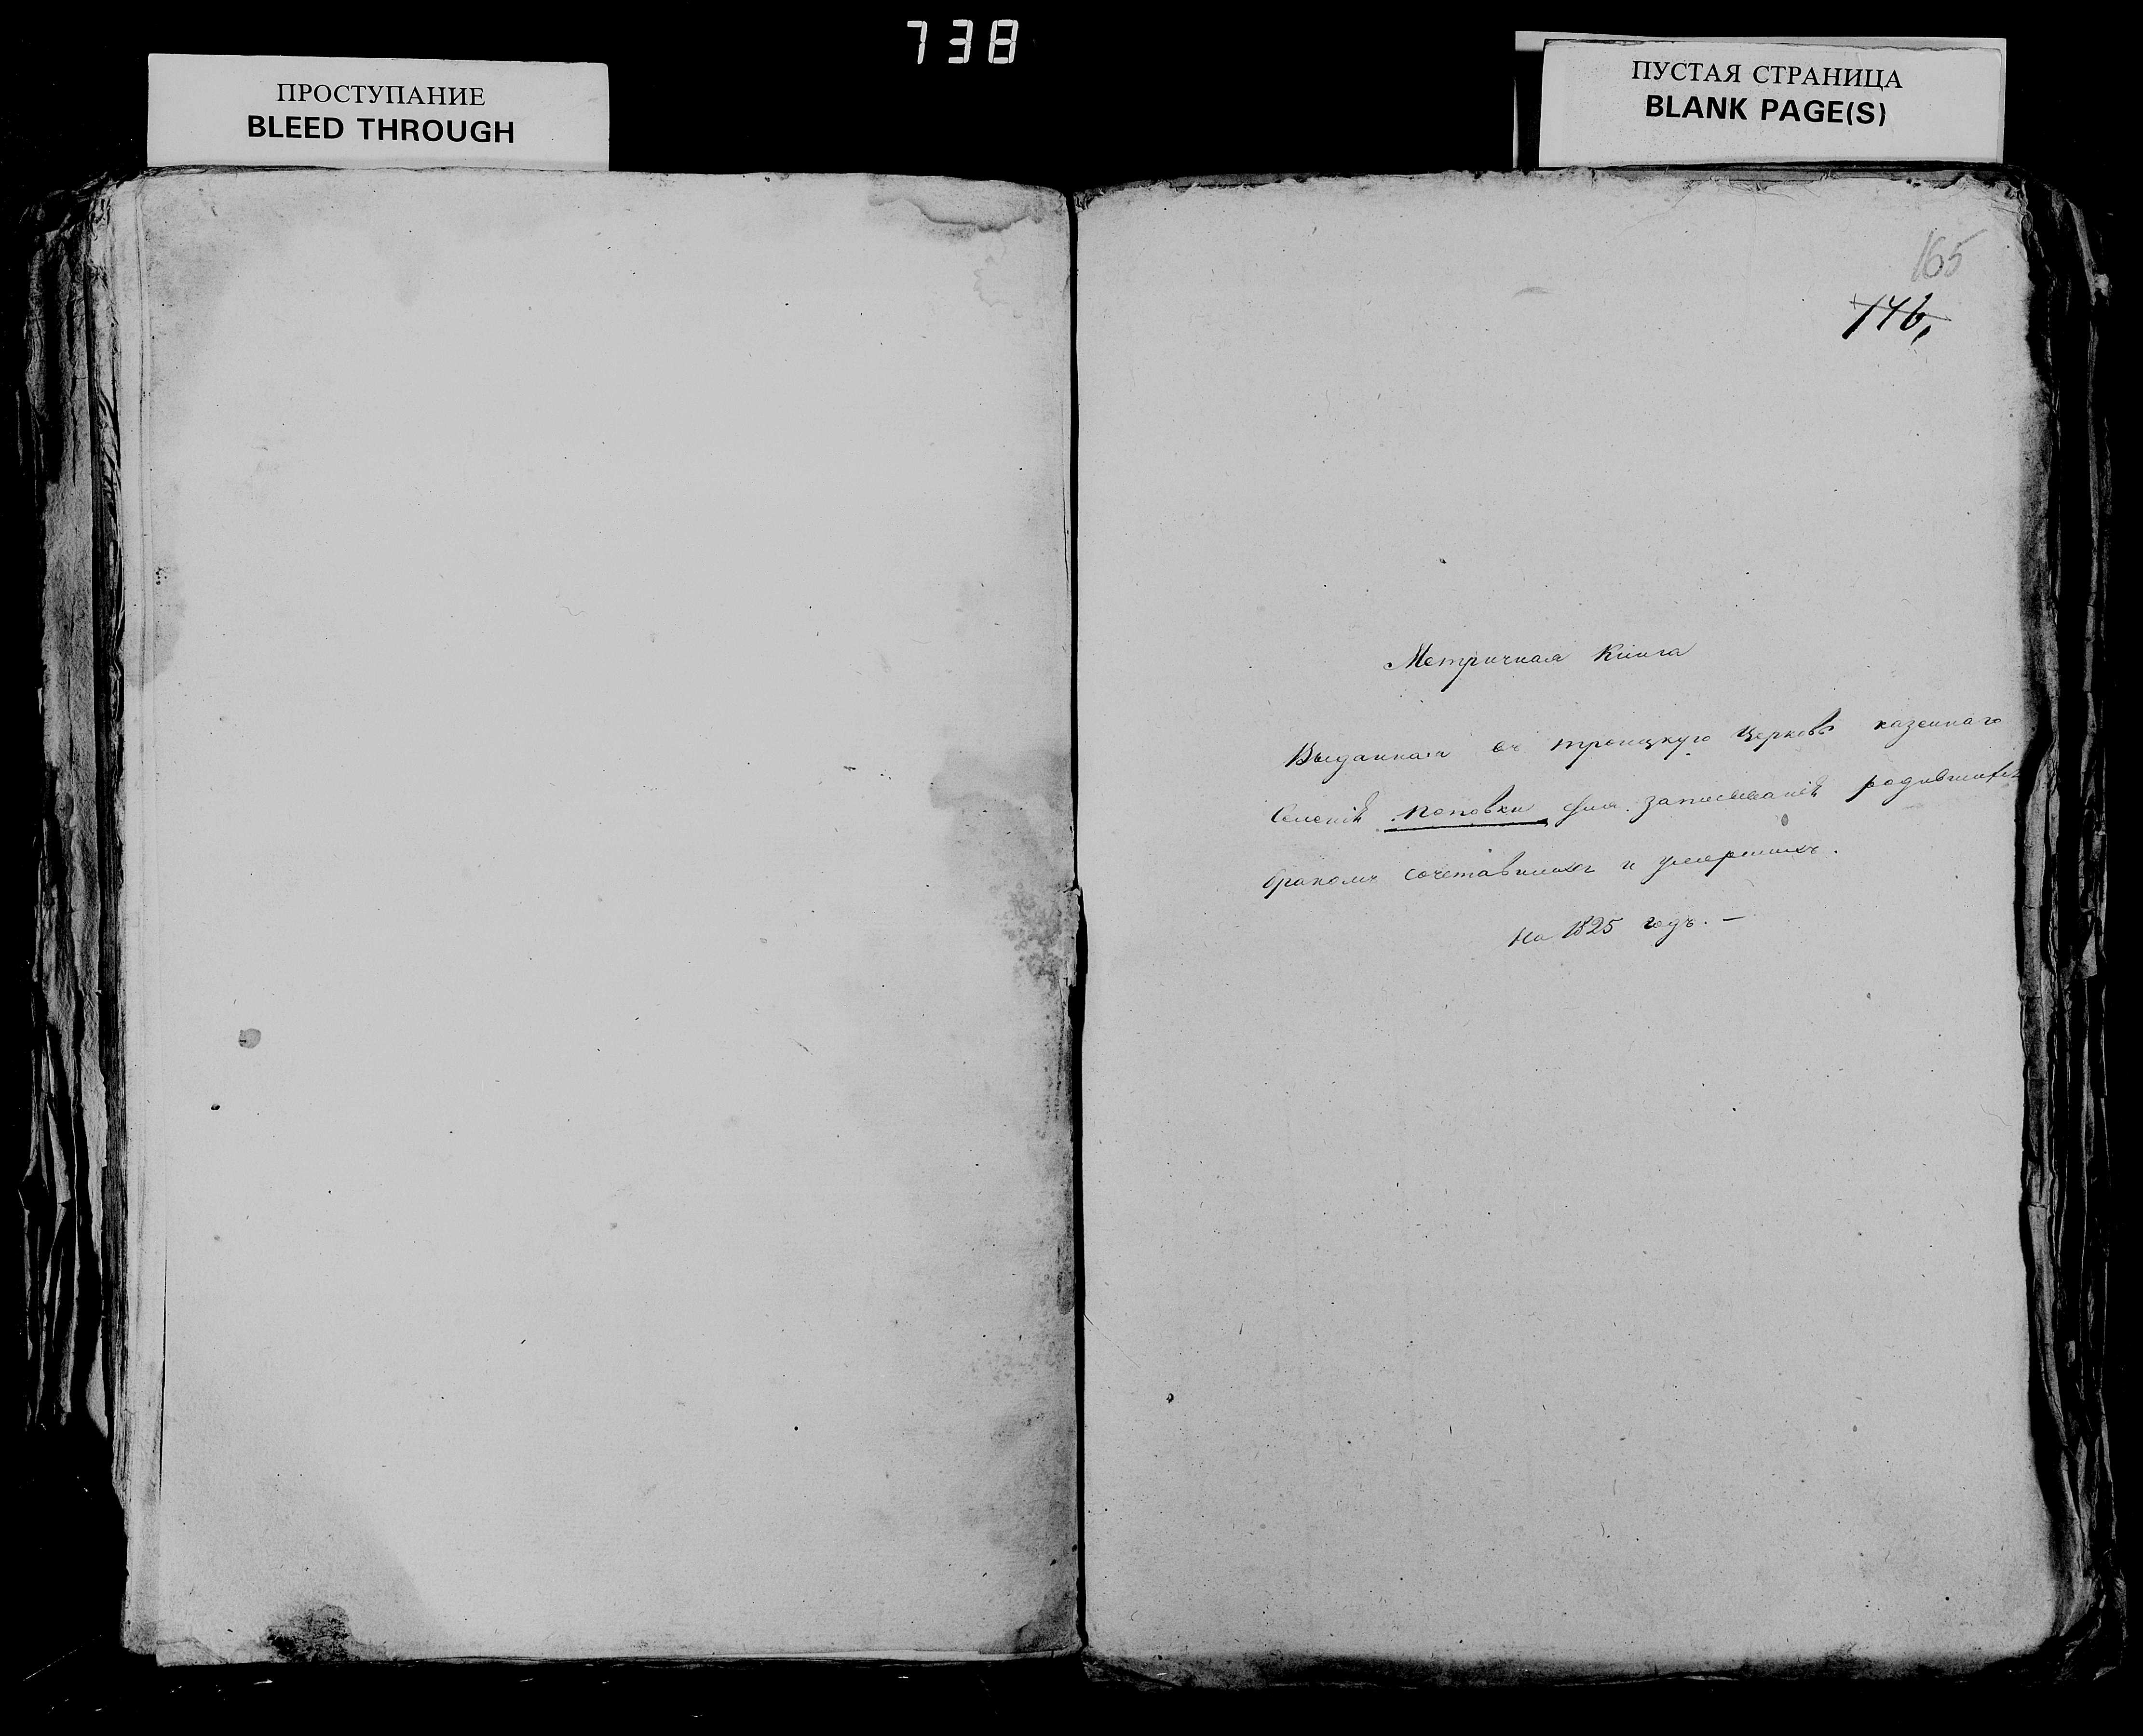 738
ПРОСТУПАНИЕ
BLEED THROUGH
ПУСТАЯ СТРАНИЦА
BLANK PAGE(S)
165
146,
Метричная Книга
Выданная въ троицкую Церковь казеннаго
Селенія Поповки для записыванія родившихся
бракомъ сочетавшихся и умершихъ.
На 1825 годъ. —